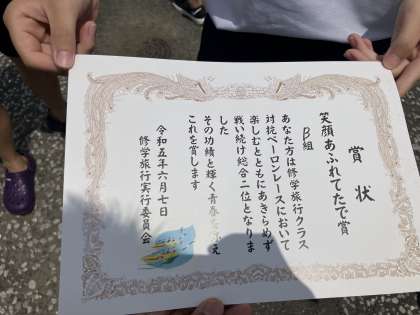 賞状
笑顔あふれてたで賞
B組
あなた方は修学旅行クラス
対抗ペーロンレースにおいて
楽しむとともにあきらめず
戦い続け総合二位となりま
した
その功績と輝く青春を え
これを賞します
令和五年六月七日
修学旅行実行委員会